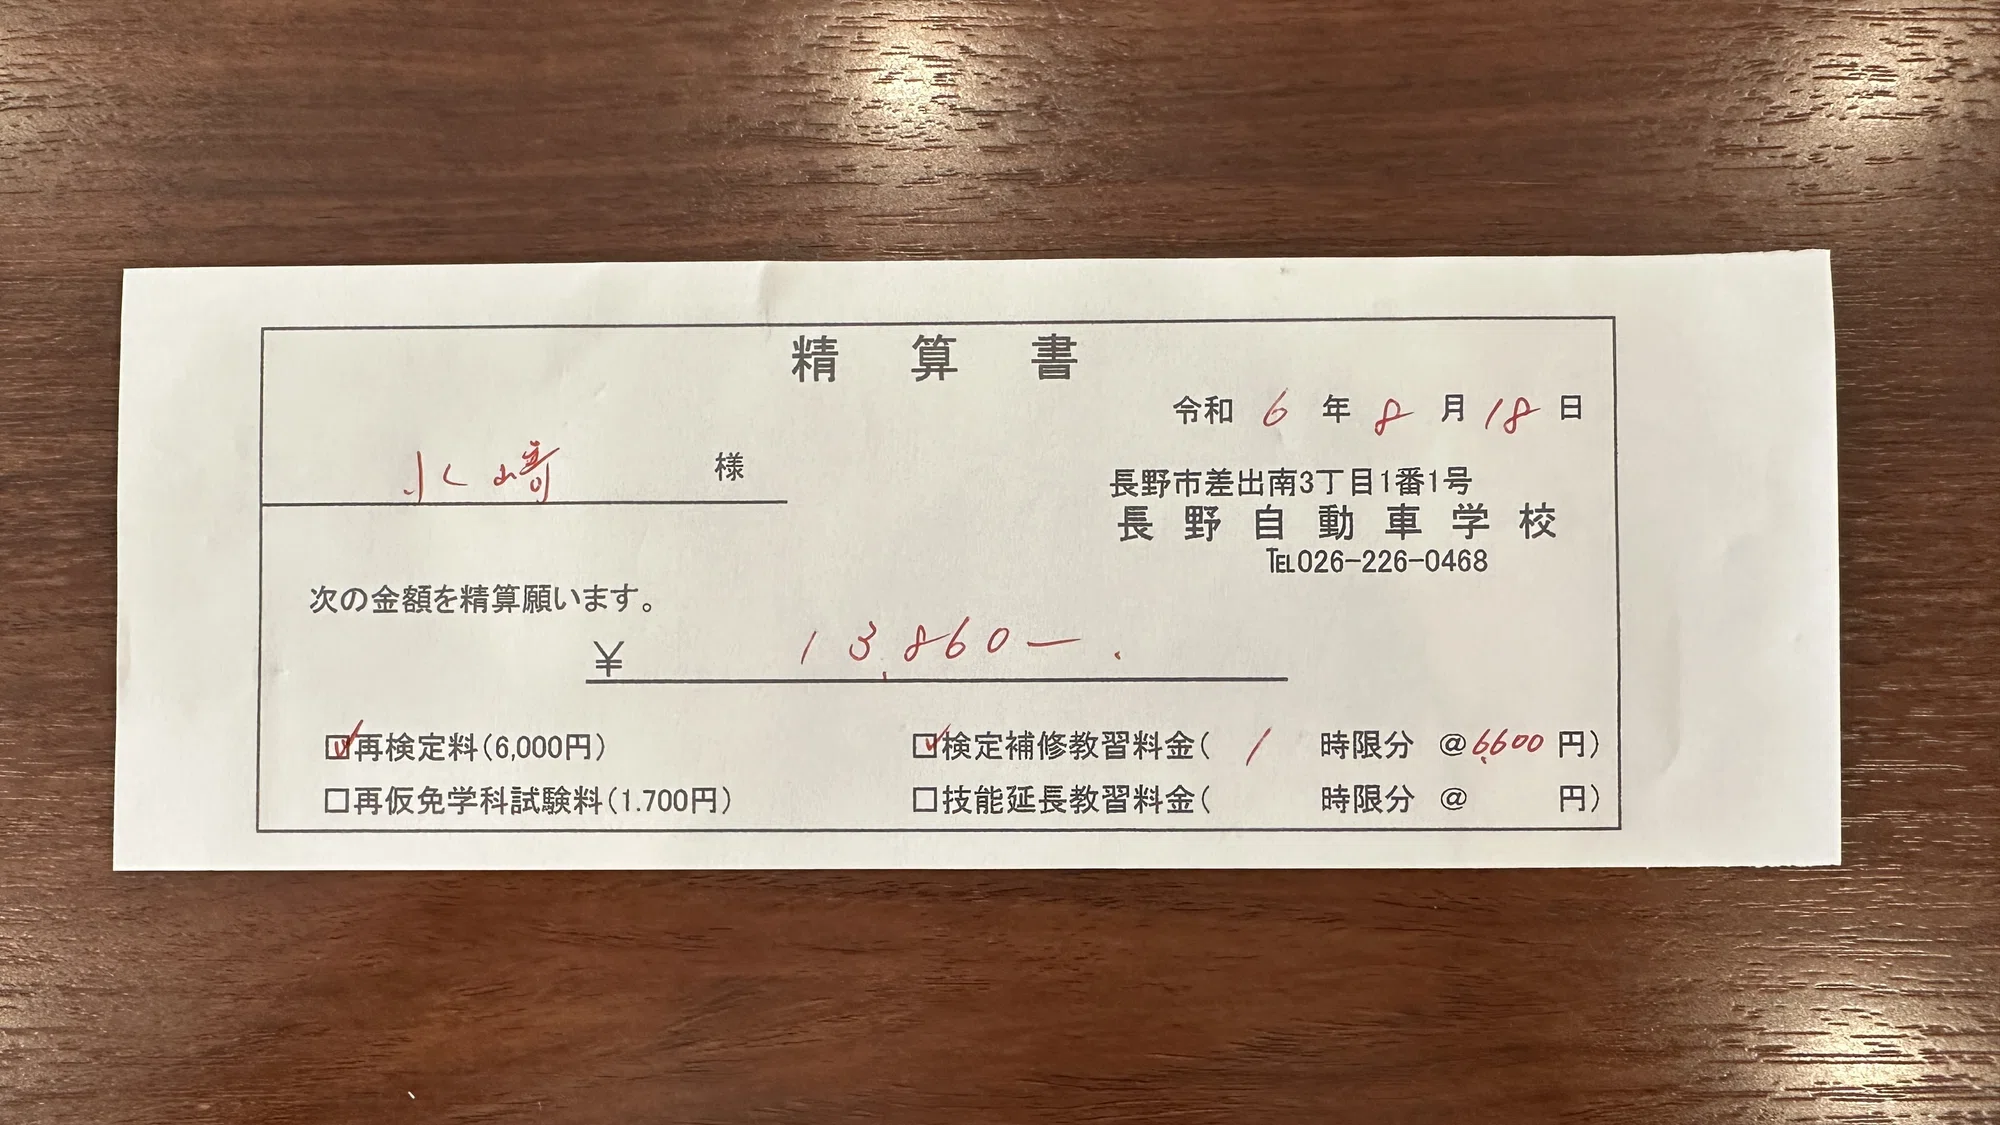 精算書
令和 6 年 8 月 18 日
水﨑 様
長野市差出南3丁目1番1号
長野自動車学校
℡026-226-0468
次の金額を精算願います。
¥ 13,860-.
☑再検定料(6,000円) ☑検定補修教習料金( 1 時限分 @6,600円)
□再仮免学科試験料(1.700円) □技能延長教習料金( 時限分 @ 円)